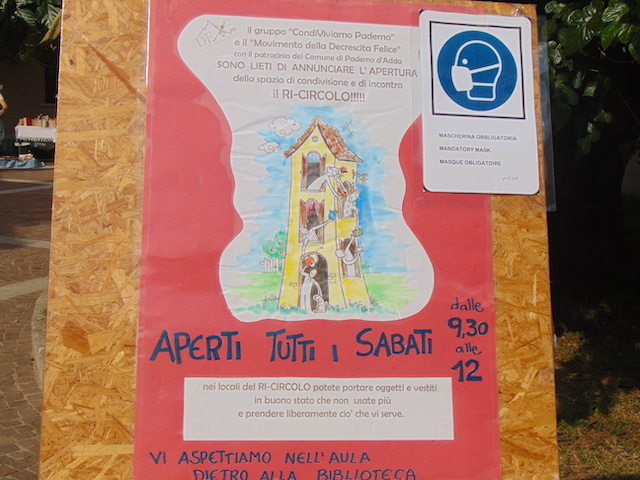 il gruppo "CondiViviamo Paderno"
e il "Movimento della Decrescita Felice"
con il patrocinio del Comune di Paderno d'Adda
SONO LIETI DI ANNUNCIARE L'APERTURA
dello spazio di condivisione e di incontro
il RI-CIRCOLO!!!!!
MASCHERINA OBBLIGATORIA
MANDATORY MASK
MASQUE OBLIGATOIRE
APERTI TUTTI I SABATI
dalle
9,30
alle
12
nei locali del RI-CIRCOLO potete portare oggetti e vestiti
in buono stato che non usate più
e prendere liberamente cio' che vi serve.
VI ASPETTIAMO NELL'AULA
DIETRO ALLA BIBLIOTECA